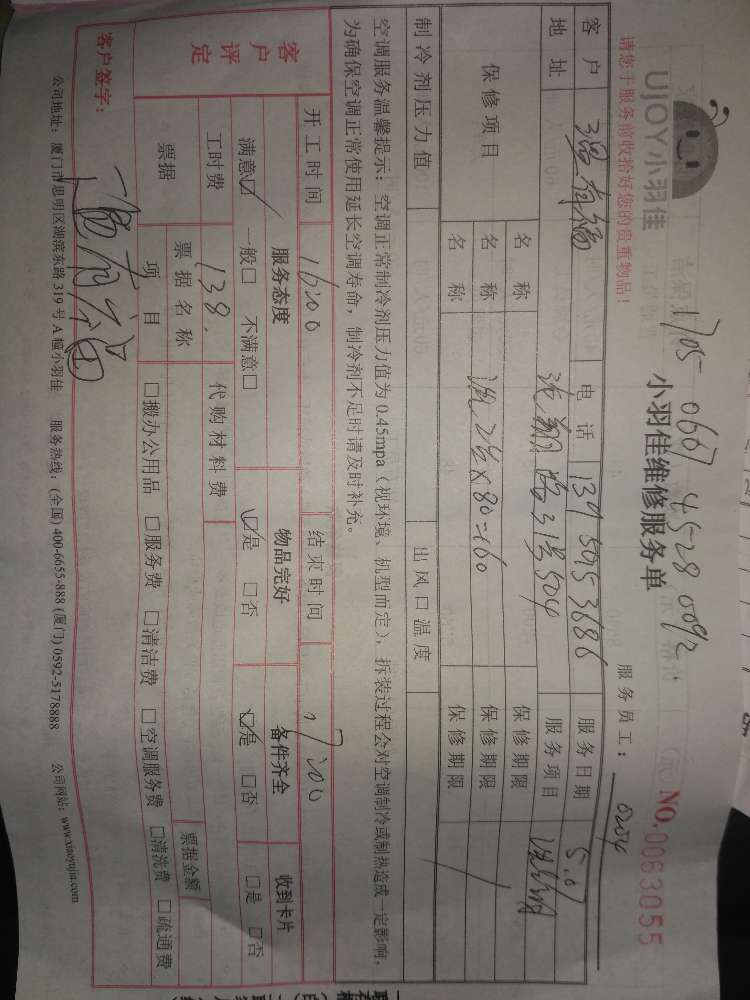 UJOY小羽佳
请您于服务前收拾好您的贵重物品！
1705 0667 4528 0092.
小羽佳维修服务单
NO.0063055
服务员工： 0204
客户 电话 服务日期 5.07
地址 31号504 服务项目
保修项目 名称 保修期限
名称 2台×80=160 保修期限
名称 保修期限
制冷剂压力值 出风口温度
空调服务温馨提示：空调正常制冷剂压力值为 0.45mpa（视环境、机型而定），拆装过程会对空调制冷或制热造成一定影响，
为确保空调正常使用延长空调寿命，制冷剂不足时请及时补充。
客户评定
开工时间 16:00 结束时间 17:00
服务态度 物品完好 备件齐全 收到卡片
满意☑ 一般□ 不满意□ ☑是 □否 ☑是 □否 □是 □否
工时费 138. 代购材料费
票据 票据名称 票据金额
项目 □搬办公用品 □服务费 □清洁费 □空调服务费 □清洗费 □疏通费
客户签字：
公司地址：厦门市思明区湖滨东路 319 号 A 幢小羽佳 服务热线：(全国) 400-6655-888 (厦门) 0592-5178888 公司网站：www.xiaoyujia.com